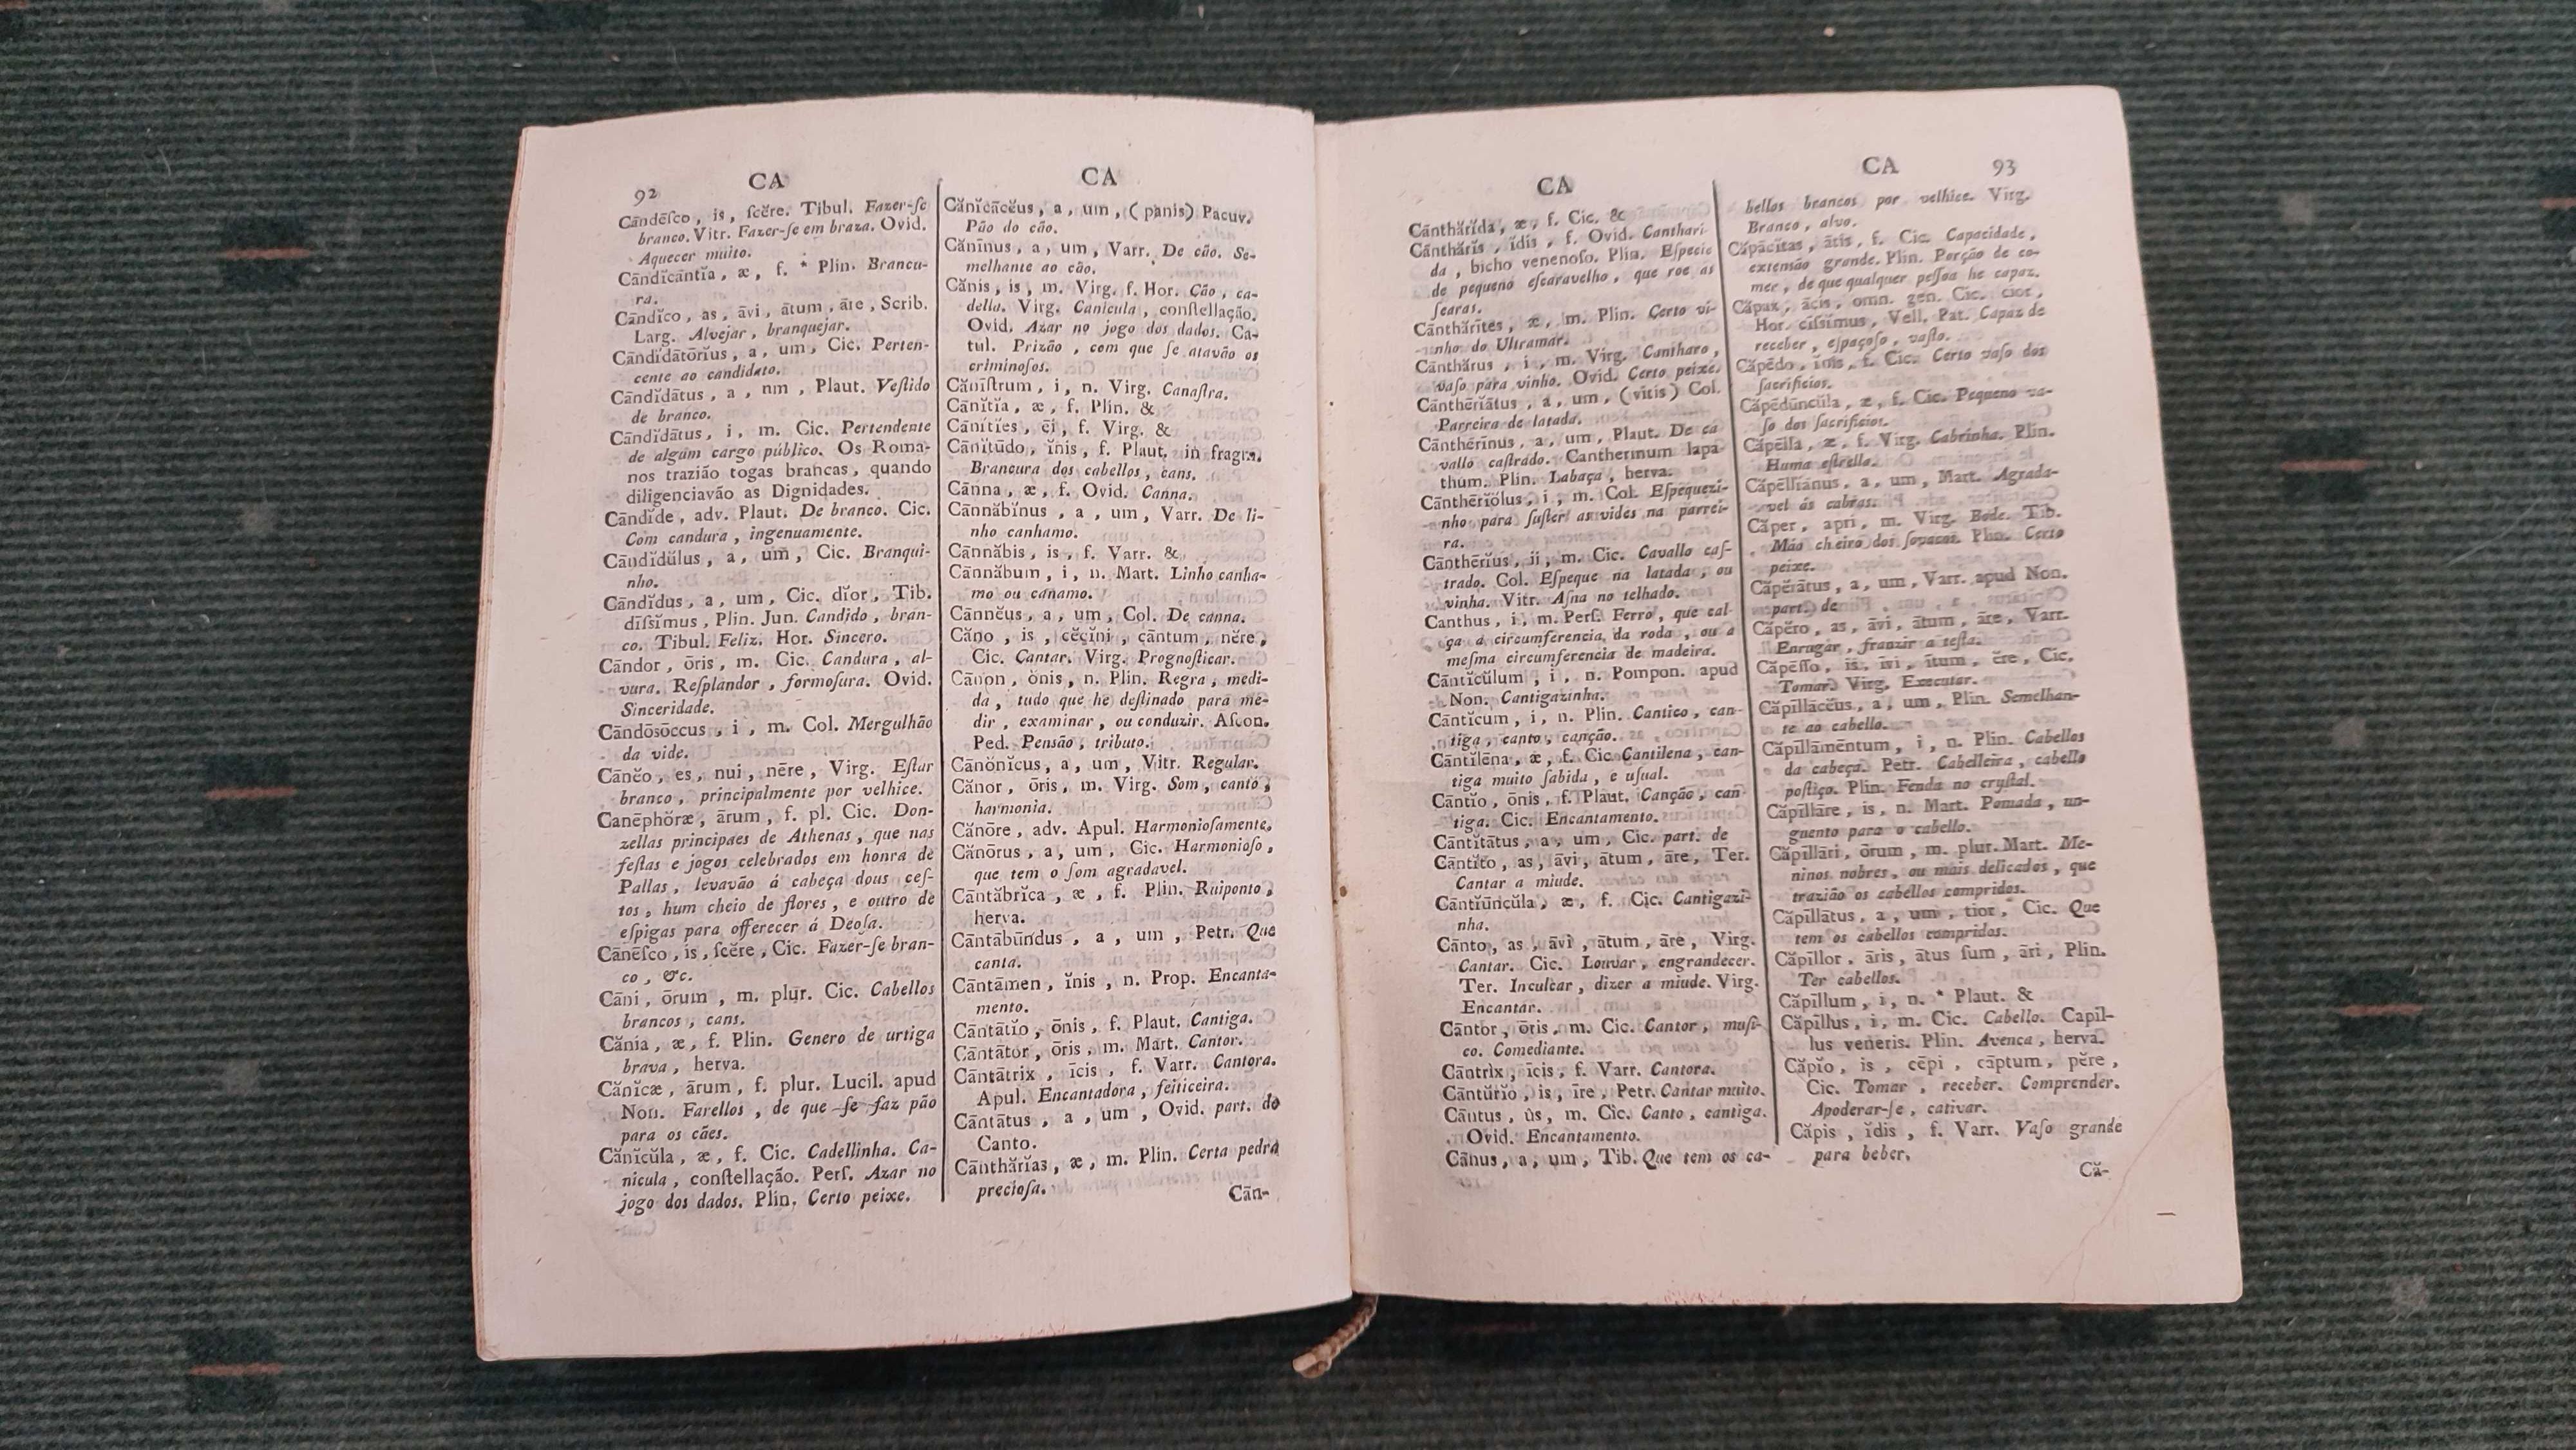 92
CA
Cāndēſco, is, ſcĕre. Tibul. Fazer-ſe
branco. Vitr. Fazer-ſe em braza. Ovid.
Aquecer muito.
Cāndĭcāntĭa, æ, f. * Plin. Brancu-
ra.
Cāndĭco, as, āvi, ātum, āre, Scrib.
Larg. Alvejar, branquejar.
Cāndĭdātōrĭus, a, um, Cic. Perten-
cente ao candidato.
Cāndĭdātus, a, nm, Plaut. Veſtido
de branco.
Cāndĭdātus, i, m. Cic. Pertendente
de algum cargo público. Os Roma-
nos trazião togas brancas, quando
diligenciavão as Dignidades.
Cāndĭde, adv. Plaut. De branco. Cic.
Com candura, ingenuamente.
Cāndĭdŭlus, a, um, Cic. Branqui-
nho.
Cāndĭdus, a, um, Cic. dĭor, Tib.
dīſſĭmus, Plin. Jun. Candido, bran-
co. Tibul. Feliz. Hor. Sincero.
Cāndor, ōris, m. Cic. Candura, al-
vura. Reſplandor, formoſura. Ovid.
Sinceridade.
Cāndōsōccus, i, m. Col. Mergulhão
da vide.
Cānĕo, es, nui, nēre, Virg. Eſtar
branco, principalmente por velhice.
Canēphŏræ, ārum, f. pl. Cic. Don-
zellas principaes de Athenas, que nas
feſtas e jogos celebrados em honra de
Pallas, levavão á cabeça dous ceſ-
tos, hum cheio de flores, e outro de
eſpigas para offerecer á Deoſa.
Cānēſco, is, ſcĕre, Cic. Fazer-ſe bran-
co, &c.
Cāni, ōrum, m. plur. Cic. Cabellos
brancos, cans.
Cănia, æ, f. Plin. Genero de urtiga
brava, herva.
Cănĭcæ, ārum, f. plur. Lucil. apud
Non. Farellos, de que ſe faz pão
para os cães.
Cănĭcŭla, æ, f. Cic. Cadellinha. Ca-
nicula, conſtellação. Perſ. Azar no
jogo dos dados. Plin. Certo peixe.
CA
Cănĭcācĕus, a, um, (panis) Pacuv.
Pão do cão.
Cănīnus, a, um, Varr. De cão. Se-
melhante ao cão.
Cănis, is, m. Virg. f. Hor. Cão, ca-
della. Virg. Canicula, conſtellação.
Ovid. Azar no jogo dos dados. Ca-
tul. Prizão, com que ſe atavão os
criminoſos.
Cănīſtrum, i, n. Virg. Canaſtra.
Cānĭtĭa, æ, f. Plin. &
Cānĭtĭes, ēi, f. Virg. &
Cānĭtūdo, ĭnis, f. Plaut. in fragm.
Brancura dos cabellos, cans.
Cānna, æ, f. Ovid. Canna.
Cānnăbĭnus, a, um, Varr. De li-
nho canhamo.
Cānnăbis, is, f. Varr. &
Cānnăbum, i, n. Mart. Linho canha-
mo ou canamo.
Cānnĕus, a, um, Col. De canna.
Căno, is, cĕcĭni, cāntum, nĕre,
Cic. Cantar. Virg. Prognoſticar.
Cănon, ŏnis, n. Plin. Regra, medi-
da, tudo que he deſtinado para me-
dir, examinar, ou conduzir. Aſcon.
Ped. Pensão, tributo.
Cănŏnĭcus, a, um, Vitr. Regular.
Cănor, ōris, m. Virg. Som, canto,
harmonia.
Cănōre, adv. Apul. Harmonioſamente.
Cănōrus, a, um, Cic. Harmonioſo,
que tem o ſom agradavel.
Cāntăbrĭca, æ, f. Plin. Ruiponto,
herva.
Cāntābūndus, a, um, Petr. Que
canta.
Cāntāmen, ĭnis, n. Prop. Encanta-
mento.
Cāntātĭo, ōnis, f. Plaut. Cantiga.
Cāntātor, ōris, m. Mart. Cantor.
Cāntātrix, īcis, f. Varr. Cantora.
Apul. Encantadora, feiticeira.
Cāntātus, a, um, Ovid. part. do
Canto.
Cānthărĭas, æ, m. Plin. Certa pedra
precioſa.
Cān-
CA
Cānthărĭda, æ, f. Cic. &
Cānthăris, ĭdis, f. Ovid. Canthari-
da, bicho venenoſo. Plin. Eſpecie
de pequeno eſcaravelho, que roe as
ſearas.
Cānthărītes, æ, m. Plin. Certo vi-
nho do Ultramar.
Cānthărus, i, m. Virg. Cantharo,
vaſo para vinho. Ovid. Certo peixe.
Cānthērĭātus, a, um, (vitis) Col.
Parreira de latada.
Cānthērīnus, a, um, Plaut. De ca
vallo caſtrado. Cantherinum lapa
thum. Plin. Labaça, herva.
Cānthērĭŏlus, i, m. Col. Eſpequezi-
nho para ſuſter as vides na parrei-
ra.
Cānthērĭus, ii, m. Cic. Cavallo caſ-
trado. Col. Eſpeque na latada, ou
vinha. Vitr. Aſna no telhado.
Canthus, i, m. Perſ. Ferro, que cal-
ça a circumferencia da roda, ou a
meſma circumferencia de madeira.
Cāntĭcŭlum, i, n. Pompon. apud
Non. Cantigazinha.
Cāntĭcum, i, n. Plin. Cantico, can-
tiga, canto, canção.
Cāntĭlēna, æ, f. Cic. Cantilena, can-
tiga muito ſabida, e uſual.
Cāntĭo, ōnis, f. Plaut. Canção, can
tiga. Cic. Encantamento.
Cāntĭtātus, a, um, Cic. part. de
Cāntĭto, as, āvi, ātum, āre, Ter.
Cantar a miude.
Cāntĭūncŭla, æ, f. Cic. Cantigazi-
nha.
Cānto, as, āvi, ātum, āre, Virg.
Cantar. Cic. Louvar, engrandecer.
Ter. Inculcar, dizer a miude. Virg.
Encantar.
Cāntor, ōris, m. Cic. Cantor, muſi-
co. Comediante.
Cāntrix, īcis, f. Varr. Cantora.
Cāntŭrĭo, is, īre, Petr. Cantar muito.
Cāntus, ûs, m. Cic. Canto, cantiga.
Ovid. Encantamento.
Cānus, a, um, Tib. Que tem os ca-
CA
93
bellos brancos por velhice. Virg.
Branco, alvo.
Căpācĭtas, ātis, f. Cic. Capacidade,
extensão grande. Plin. Porção de co-
mer, de que qualquer peſſoa he capaz.
Căpax, ācis, omn. gen. Cic. cior,
Hor. cīſſĭmus, Vell. Pat. Capaz de
receber, eſpaçoſo, vaſto.
Căpēdo, ĭnis, f. Cic. Certo vaſo dos
ſacrificios.
Căpēdūncŭla, æ, f. Cic. Pequeno va-
ſo dos ſacrificios.
Căpēlla, æ, f. Virg. Cabrinha. Plin.
Huma eſtrella.
Căpēllĭānus, a, um, Mart. Agrada-
vel ás cabras.
Căper, apri, m. Virg. Bode. Tib.
Máo cheiro dos ſovacos. Plin. Certo
peixe.
Căpĕrātus, a, um, Varr. apud Non.
part. de
Căpĕro, as, āvi, ātum, āre, Varr.
Enrugar, franzir a teſta.
Căpēſſo, is, īvi, ītum, ĕre, Cic.
Tomar. Virg. Executar.
Căpīllācĕus, a, um, Plin. Semelhan-
te ao cabello.
Căpīllāmēntum, i, n. Plin. Cabellos
da cabeça. Petr. Cabelleira, cabello
poſtiço. Plin. Fenda no cryſtal.
Căpīllāre, is, n. Mart. Pomada, un-
guento para o cabello.
Căpīllāri, ōrum, m. plur. Mart. Me-
ninos nobres, ou mais delicados, que
trazião os cabellos compridos.
Căpīllātus, a, um, tior, Cic. Que
tem os cabellos compridos.
Căpīllor, āris, ātus ſum, āri, Plin.
Ter cabellos.
Căpīllum, i, n. * Plaut. &
Căpīllus, i, m. Cic. Cabello. Capil-
lus veneris. Plin. Avenca, herva.
Căpĭo, is, cēpi, cāptum, pĕre,
Cic. Tomar, receber. Comprender.
Apoderar-ſe, cativar.
Căpis, ĭdis, f. Varr. Vaſo grande
para beber.
Că-